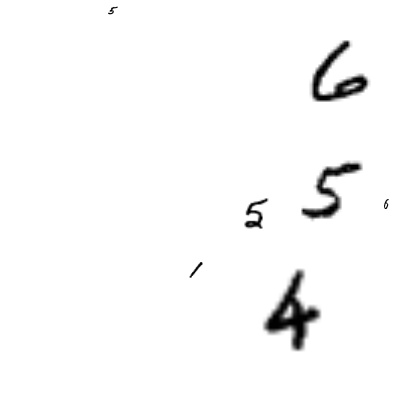 5
6
5
5 6
1
4